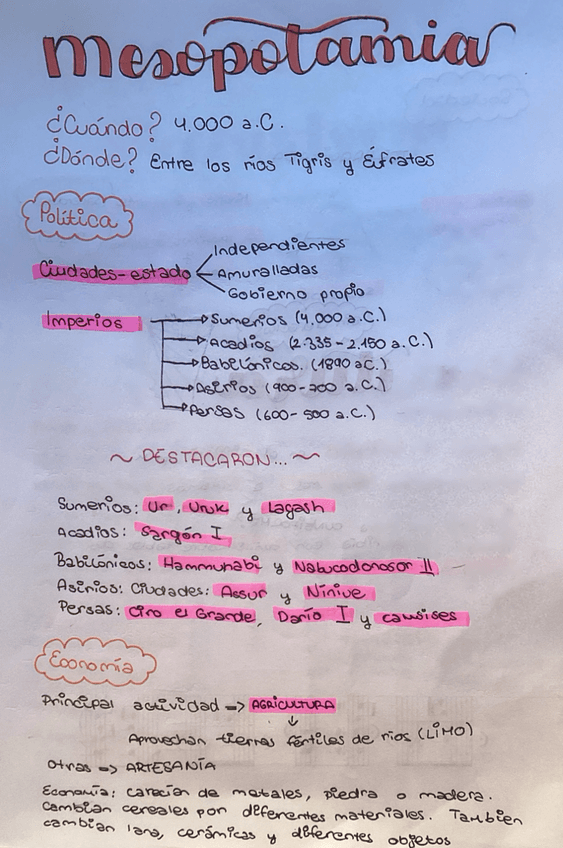 Mesopotamia
¿Cuándo? 4.000 a.C.
¿Dónde? Entre los ríos Tigris y Éifrates
Política
Ciudades-estado
Independientes
Amuralladas
Gobierno propio
Imperios
Sumerios (4,000 a.C.)
Acadios (2.335-2.150 a.C.)
Babilónicos. (1890 a.C.)
Asirios (900-200 a.C.)
Persas (600-500 a.C.)
~ DESTACARON... ~
Sumerios: Ur, Uruk y Lagash
Acadios: Sargón I
Babilónicos: Hammurabi y Nabucodonosor II
Asirios: Ciudades: Assur y Nínive
Persas: Ciro el Grande, Darío I y Cambises
Economía
Principal actividad => AGRICULTURA
Aprovechan tierras fértiles de ríos (LIMO)
Otras => ARTESANÍA
Economía: carecían de metales, piedra o madera.
Cambian cereales por diferentes materiales. Tambien
cambian lana, cerámicas y diferentes objetos